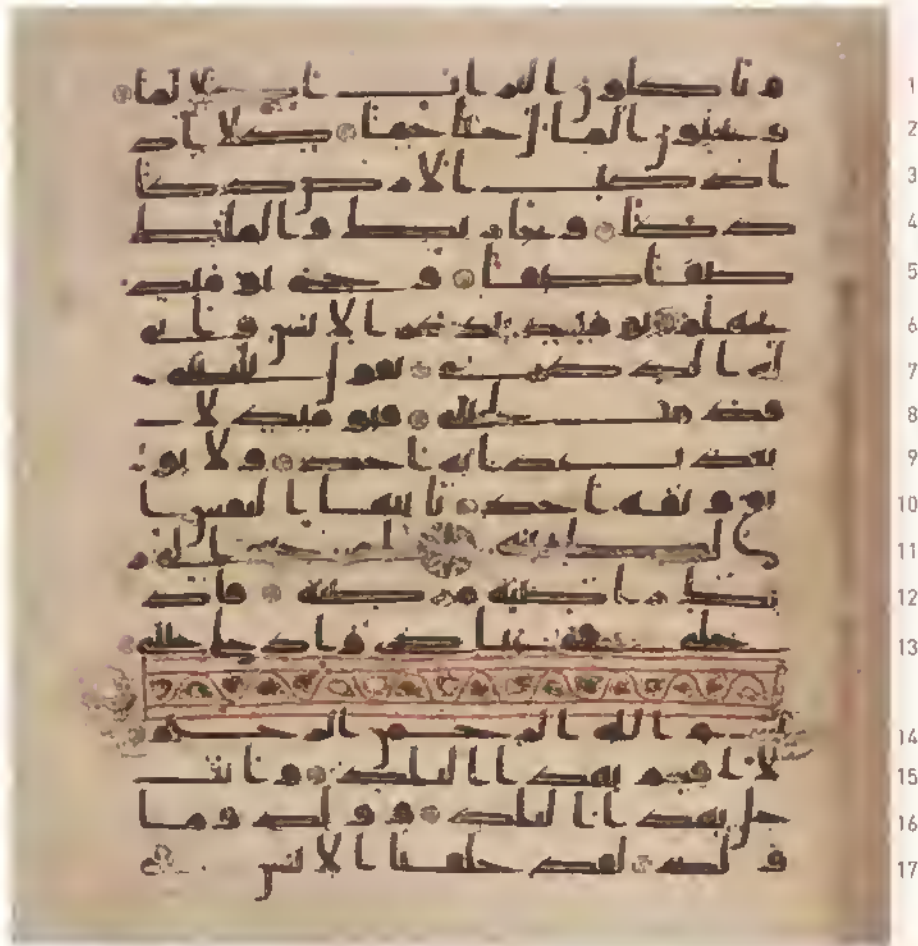 و تاكلون التراث اكلا لما 1
و تحبون المال حبا جما كلا اذ 2
ا دكت الارض دكا 3
دكا و جا ربك و الملك 4
صفا صفا و جاى يومئذ 5
بجهنم يومئذ يتذكر الانسن و انى 6
له الذكرى يقول يليتنى 7
قدمت لحياتى فيومئذ لا 8
يعذب عذابه احد و لا يو 9
ثق وثاقه احد يايتها النفس ا 10
لمطمئنة ارجعى الى ر 11
بك راضية مرضية فاد 12
خلى فى عبدى و ادخلى جنتى 13
بسم الله الرحمن الرحيم 14
لا اقسم بهذا البلد و انت 15
حل بهذا البلد و ولد و ما 16
ولد لقد خلقنا الانسن فى 17